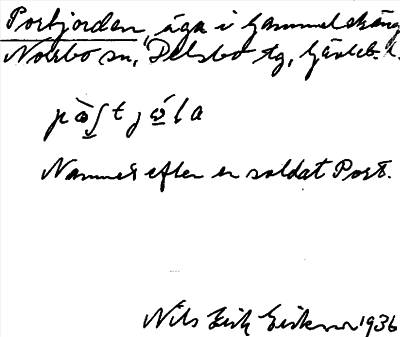 Portjorden, äga i Gammelsträng
Norrbo sn, Delsbo tg, Gävleb. l.
Namnet efter en soldat Port.
Nils Erik Eriksson 1936